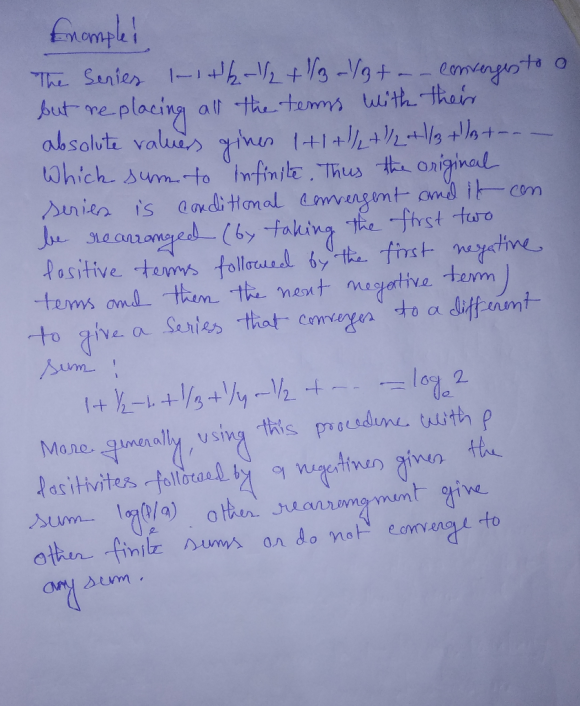 Example:
The Series 1-1+1/2-1/2+1/3-1/3+--- converges to 0
but replacing all the terms with their
absolute values gives 1+1+1/2+1/2+1/3+1/3+----
Which sum to Infinite. Thus the original
series is conditional convergent and it can
be rearranged (by taking the first two
Positive terms followed by the first negative
terms and then the next negative term)
to give a Series that converges to a different
sum:
1+1/2-1+1/3+1/4-1/2+--- = logₑ2
More generally, using this procedure with p
Positivites followed by q negatives gives the
sum logₑ(P/q). other rearrangment give
other finite sums or do not converge to
any sum.